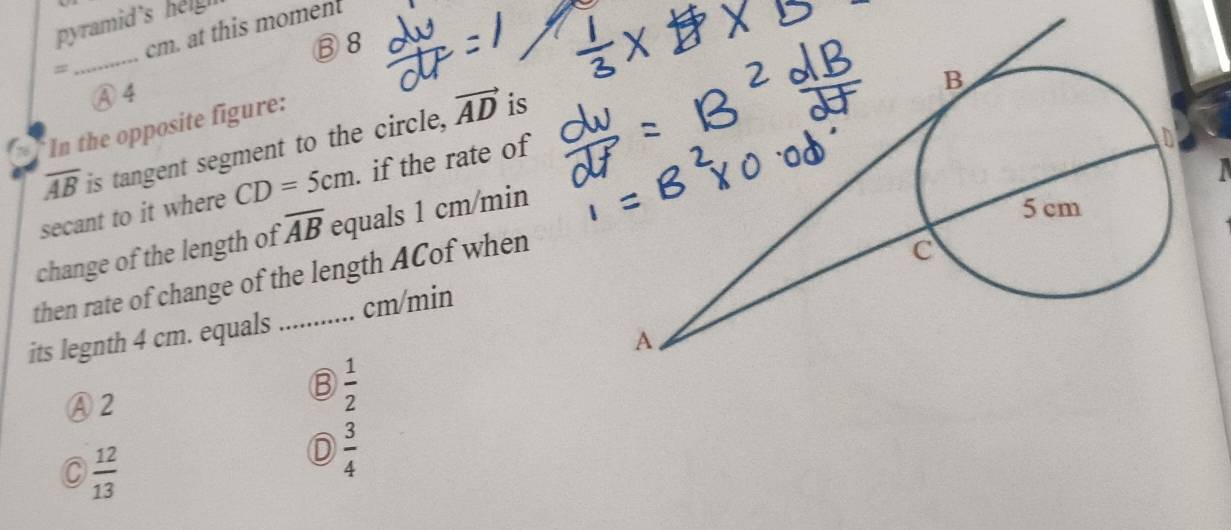 pyramid's
= ........... cm. at this moment
Ⓐ 4
Ⓑ 8
dv/dt = 1
1/3 ×
dv/dt = B² dB/dt
1 = B² × 0.
In the opposite figure:
AB is tangent segment to the circle, AD is
secant to it where CD = 5cm. if the rate of
change of the length of AB equals 1 cm/min
then rate of change of the length ACof when
its legnth 4 cm. equals ........... cm/min
Ⓐ 2
Ⓑ 1/2
Ⓒ 12/13
Ⓓ 3/4
B
D
5 cm
C
A